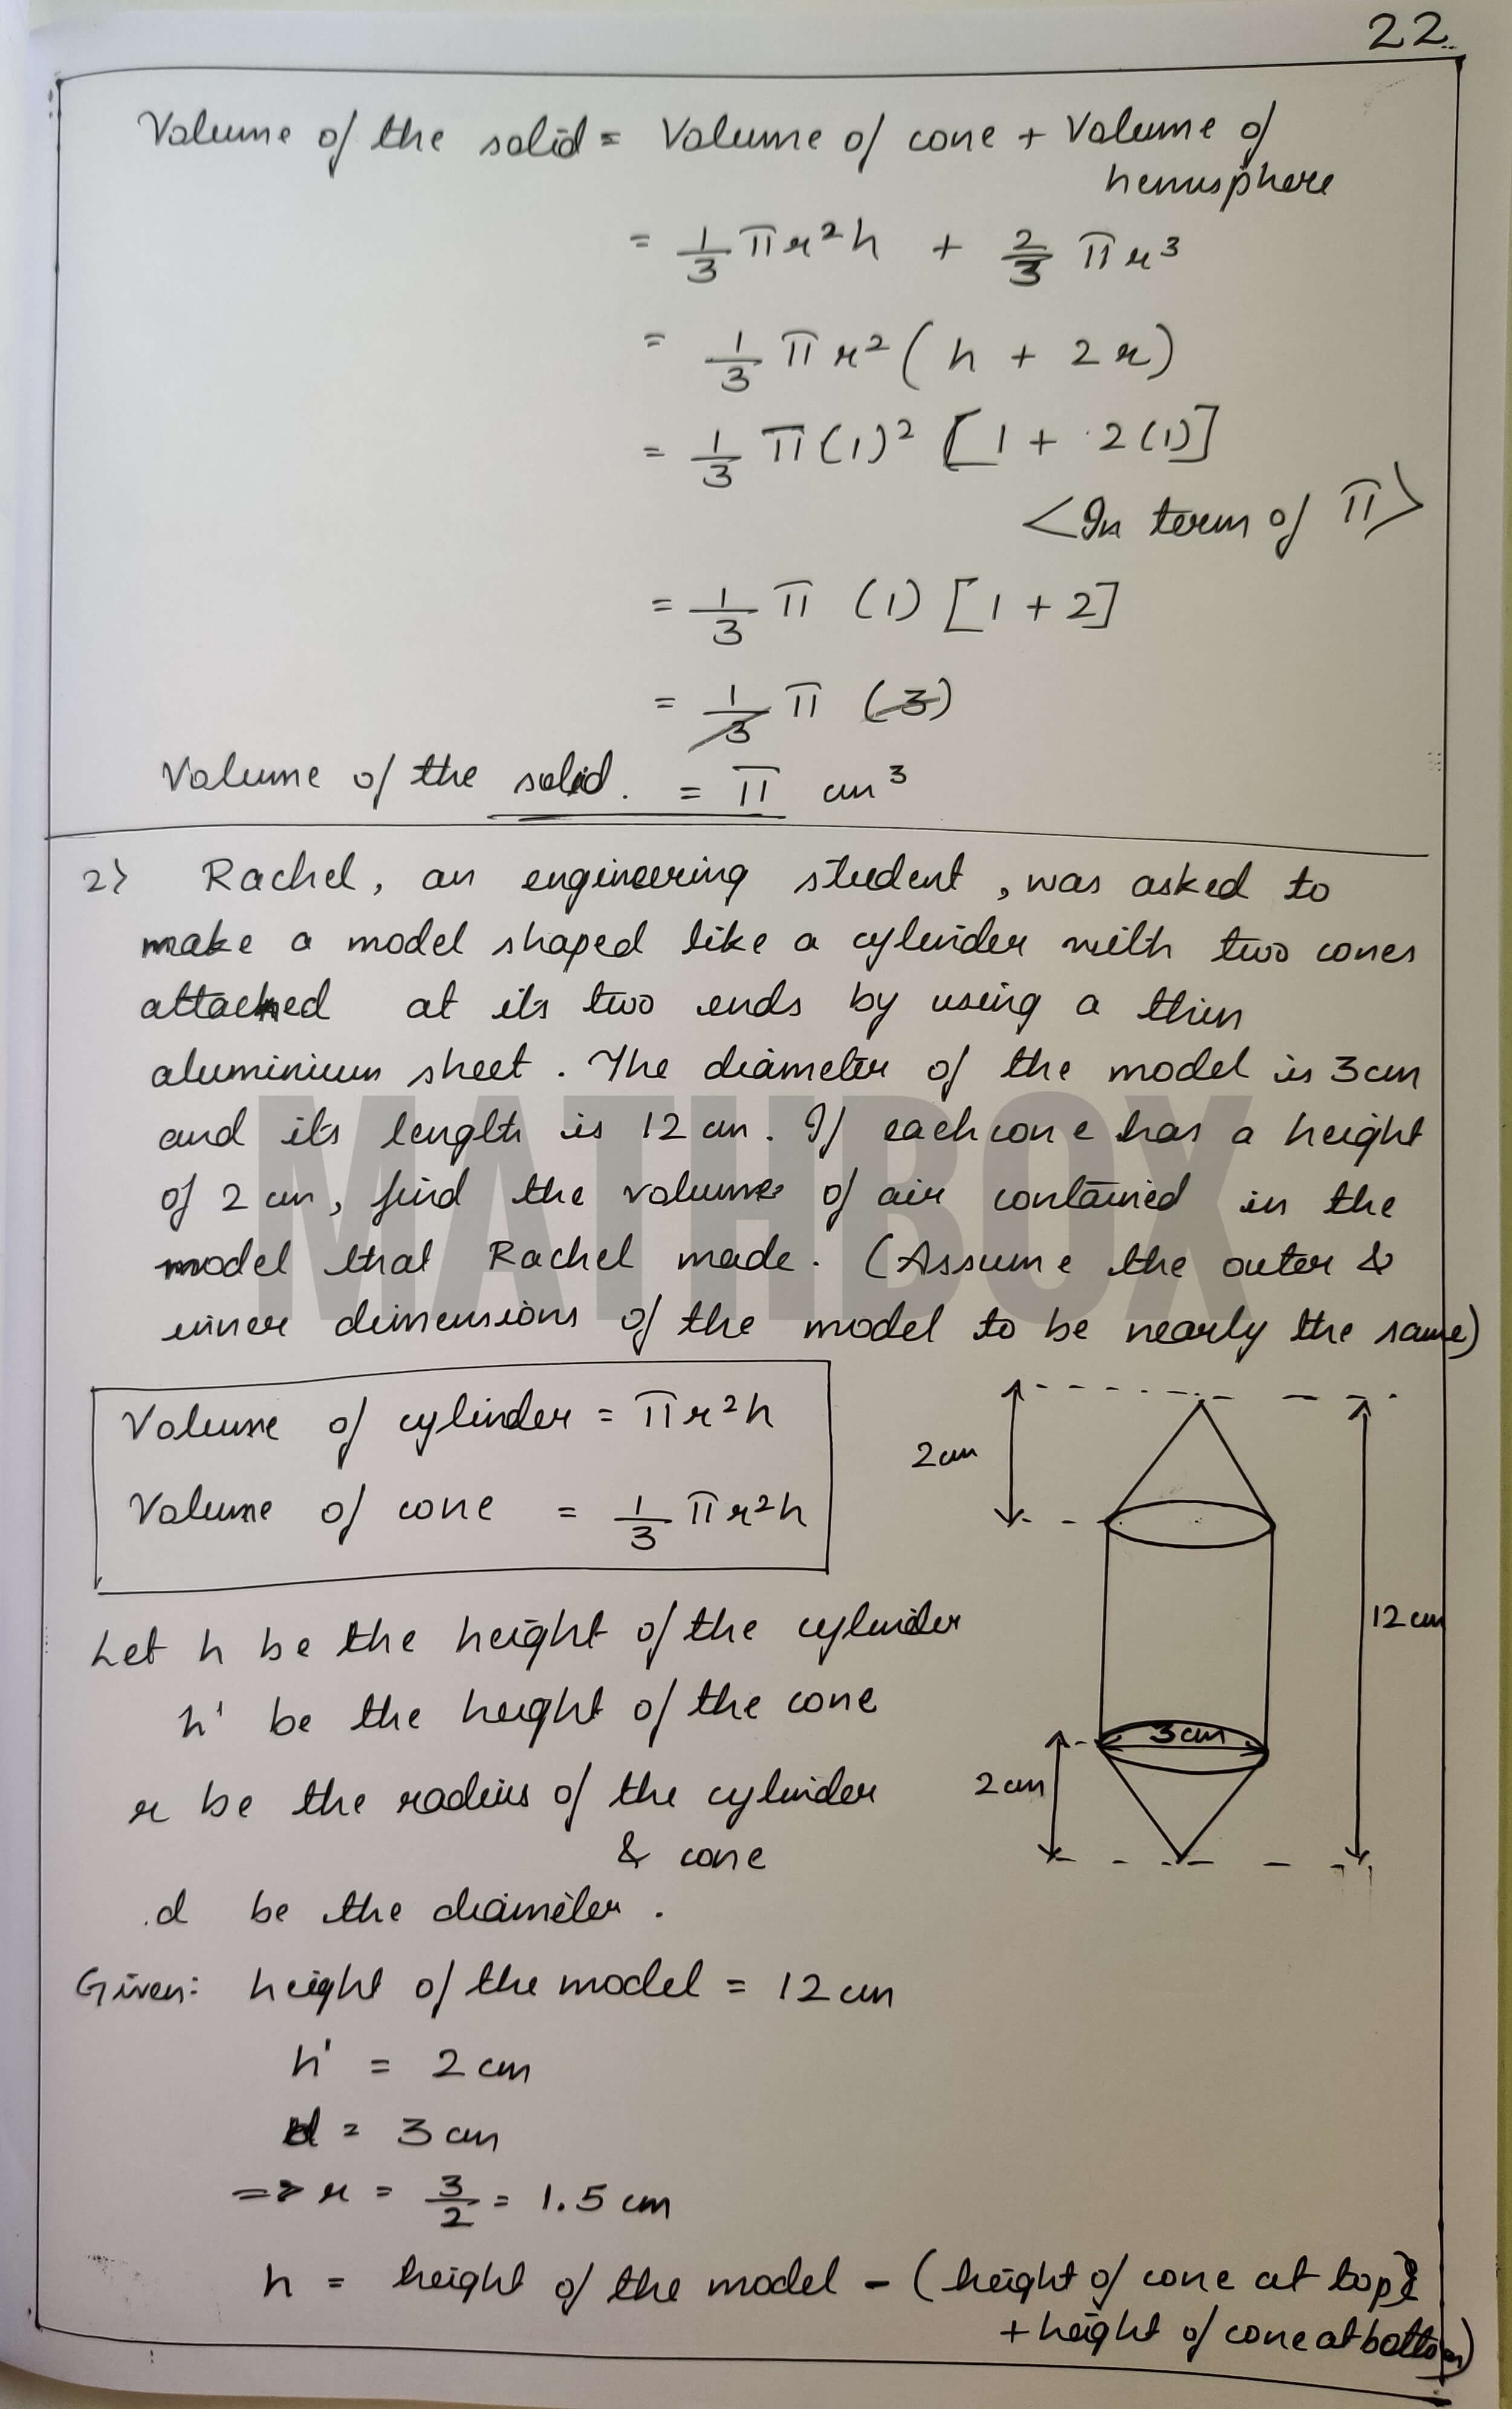 22
Volume of the solid = Volume of cone + Volume of
hemisphere
= 1/3 πr²h + 2/3 πr³
= 1/3 πr² (h + 2r)
= 1/3 π(1)² [1 + 2(1)]
<In term of π>
= 1/3 π (1) [1 + 2]
= 1/3 π (3)
Volume of the solid. = π cm³
2) Rachel, an engineering student, was asked to
make a model shaped like a cylinder with two cones
attached at its two ends by using a thin
aluminium sheet. The diameter of the model is 3cm
and its length is 12 cm. If each cone has a height
of 2 cm, find the volume of air contained in the
model that Rachel made. (Assume the outer &
inner dimensions of the model to be nearly the same)
MATHBOX
Volume of cylinder = πr²h
Volume of cone = 1/3 πr²h
2cm
12 cm
3cm
2cm
Let h be the height of the cylinder
h' be the height of the cone
r be the radius of the cylinder
& cone
d be the diameter.
Given: height of the model = 12 cm
h' = 2 cm
d = 3 cm
=> r = 3/2 = 1.5 cm
h = height of the model - (height of cone at top
+ height of cone at bottom)